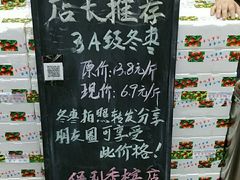 店长推荐
3A级冬枣
原价:13.8元/斤
现价:6.9元/斤
冬枣拍照转发分享
朋友圈可享受
此价格!
店